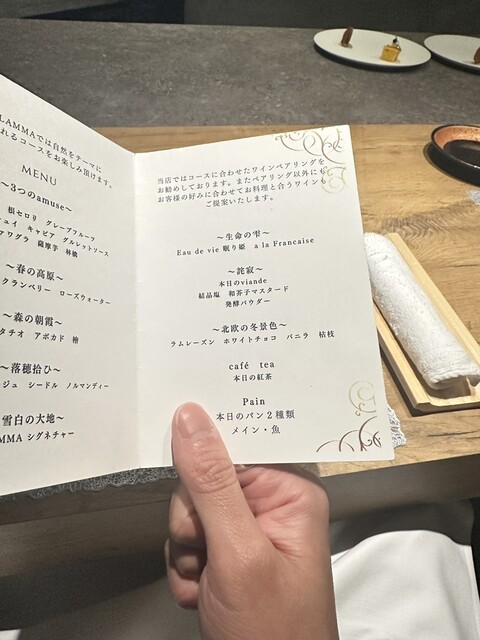 LAMMAでは自然をテーマに
れるコースをお楽しみ頂けます。
MENU
～3つのamuse～
根セロリ グレープフルーツ
キャビア グルレットソース
アワグラ 薩摩芋 林檎
～春の高原～
クランベリー ローズウォーター
～森の朝霞～
タチオ アボカド 檜
～落穂拾ひ～
ジュ シードル ノルマンディー
雪白の大地～
MMA シグネチャー
当店ではコースに合わせたワインペアリングを
お勧めしております。またペアリング以外にも
お客様の好みに合わせてお料理と合うワインも
ご提案いたします。
～生命の雫～
Eau de vie 眠り姫 a la Francaise
～詫寂～
本日のviande
結晶塩 和芥子マスタード
発酵パウダー
～北欧の冬景色～
ラムレーズン ホワイトチョコ バニラ 枯枝
café tea
本日の紅茶
Pain
本日のパン2種類
メイン・魚